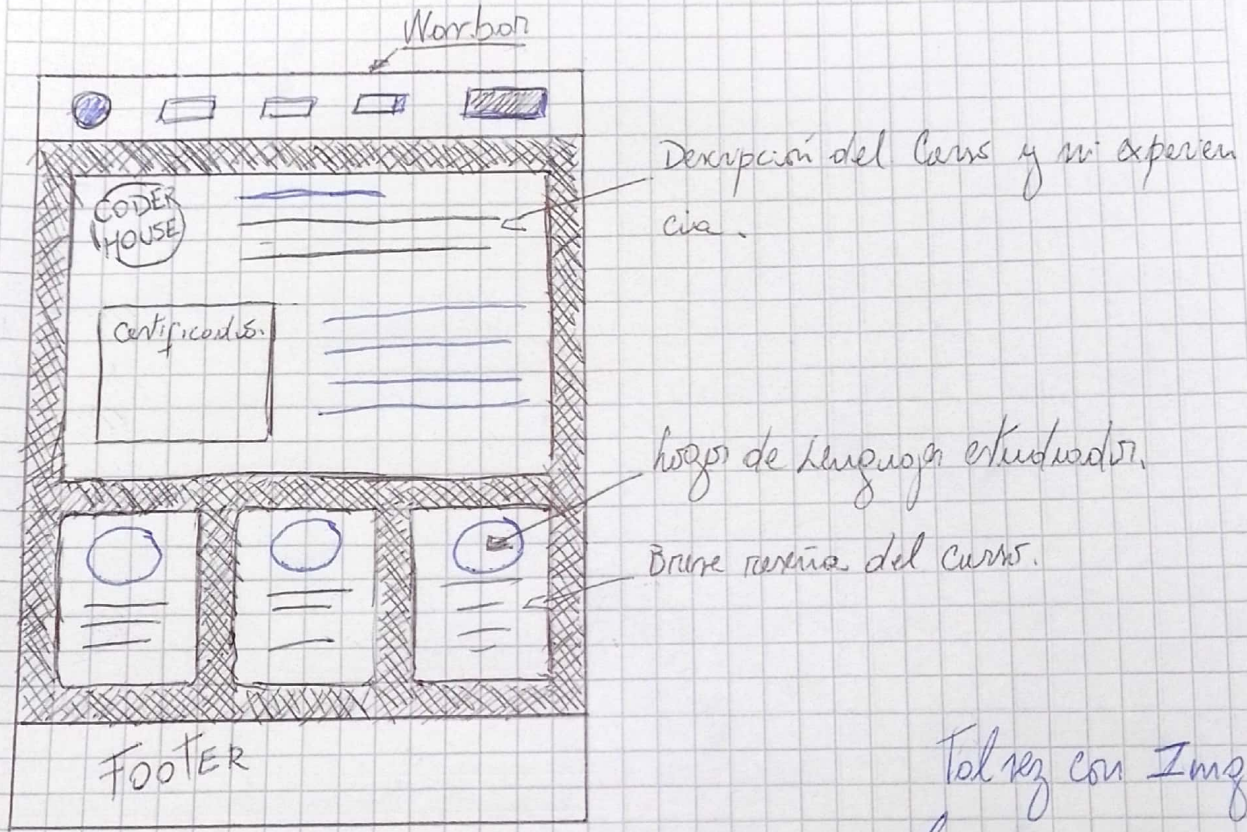 Navbar
Descripción del Curso y mi experien
cia.
CODER
HOUSE
Certificados.
Logos de Lenguajes estudiados.
Breve reseña del curso.
FOOTER
Tal vez con Img